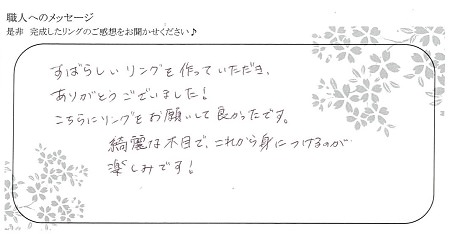 職人へのメッセージ
是非　完成したリングのご感想をお聞かせください♪
すばらしいリングを作っていただき、
ありがとうございました!
こちらにリングをお願いして良かったです。
綺麗な木目で、これから身につけるのが
楽しみです!